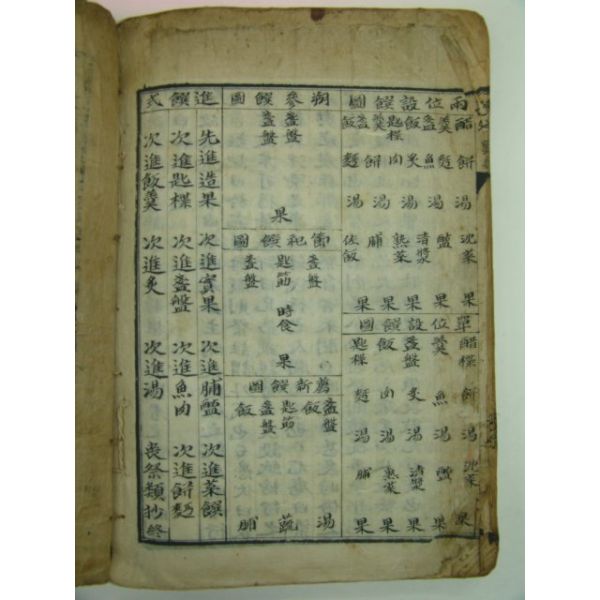 兩位設饌圖
醋 羹 盞盤 飯 匙楪 羹 盞盤 飯
餠 麵 魚 炙 肉 餠 麵
湯 湯 湯 湯 湯
沈菜 醢 淸漿 熟菜 脯 佐飯
果 果 果 果 果
單位設饌圖
醋楪 羹 盞盤 飯 匙楪
餠 魚 炙 肉 麵
湯 湯 湯 湯 湯
沈菜 醢 淸漿 熟菜 脯
果 果 果 果 果
朔參饌圖
盞盤 盞盤
果
節祀饌圖
盞盤 匙筯 盞盤
時食
果
薦新饌圖
盞盤 飯 匙筯 盞盤 飯
湯 蔬 脯
進饌式
先進造果 次進實果 次進脯醢 次進菜饌
次進匙楪 次進盞盤 次進魚肉 次進餠麵
次進飯羹 次進炙 次進湯 喪祭類抄終